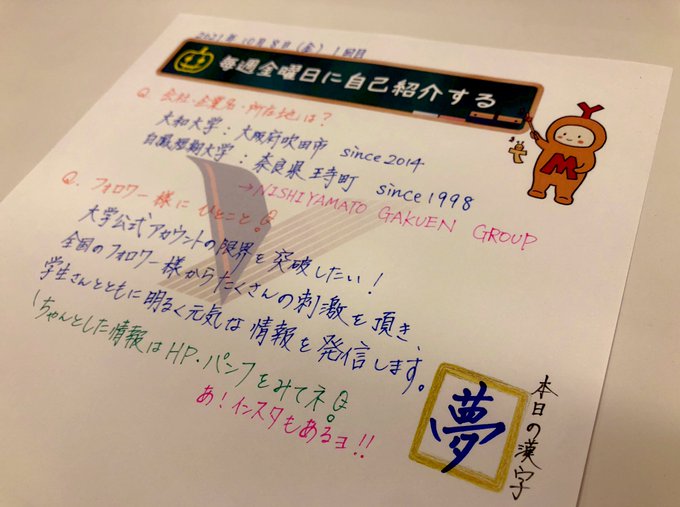 2021年10月8日(金) 1回目
毎週金曜日に自己紹介する
Q. 会社・企業名・所在地は？
大和大学：大阪府吹田市 since 2014
白鳳短期大学：奈良県王寺町 since 1998
→NISHIYAMATO GAKUEN GROUP
Q. フォロワー様にひとこと
大学公式アカウントの限界を突破したい！
全国のフォロワー様からたくさんの刺激を頂き、
学生さんとともに明るく元気な情報を発信します。
ちゃんとした情報はHP・パンフをみてネ。
あ！インスタもあるヨ!!
M
夢
本日の漢字